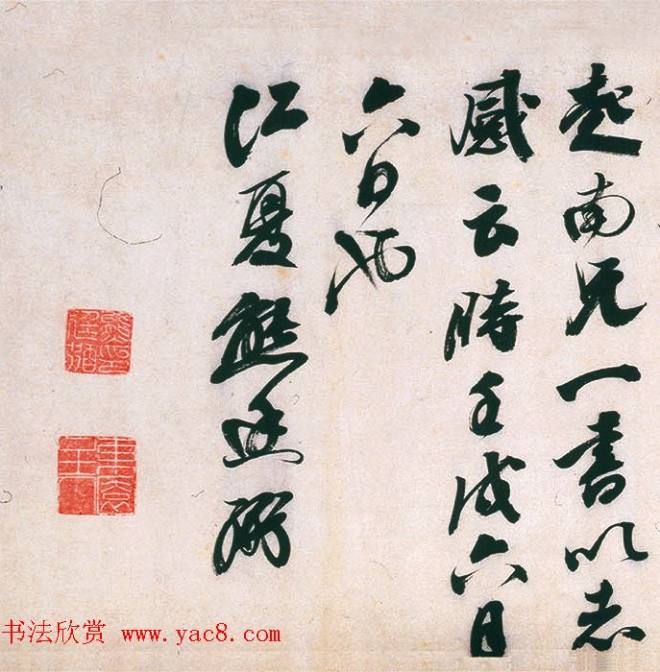 起南兄一書以志
感云時壬戌六月
六日也
江夏熊廷弼
书法欣赏 www.yac8.com